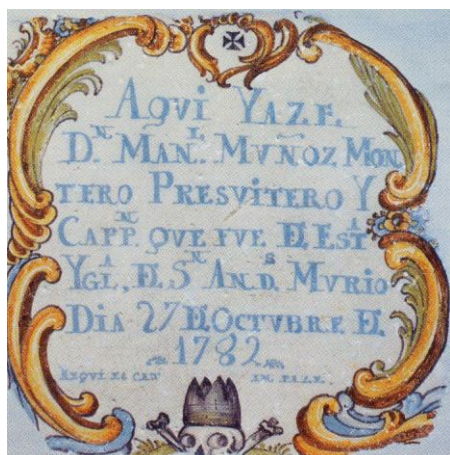 AQVI YAZE.
D.ᴺ MAN.ᴸ MVÑOZ MON
TERO PRESVITERO Y
CAPP.ᴺ QVE FVE DE EST.ᴬ
YGL.ᴬ DE S.ᴺ AN.D.ˢ MVRIO
DIA 27 DE OCTVBRE DE
1782
REQVIES CAD IN PAZE.